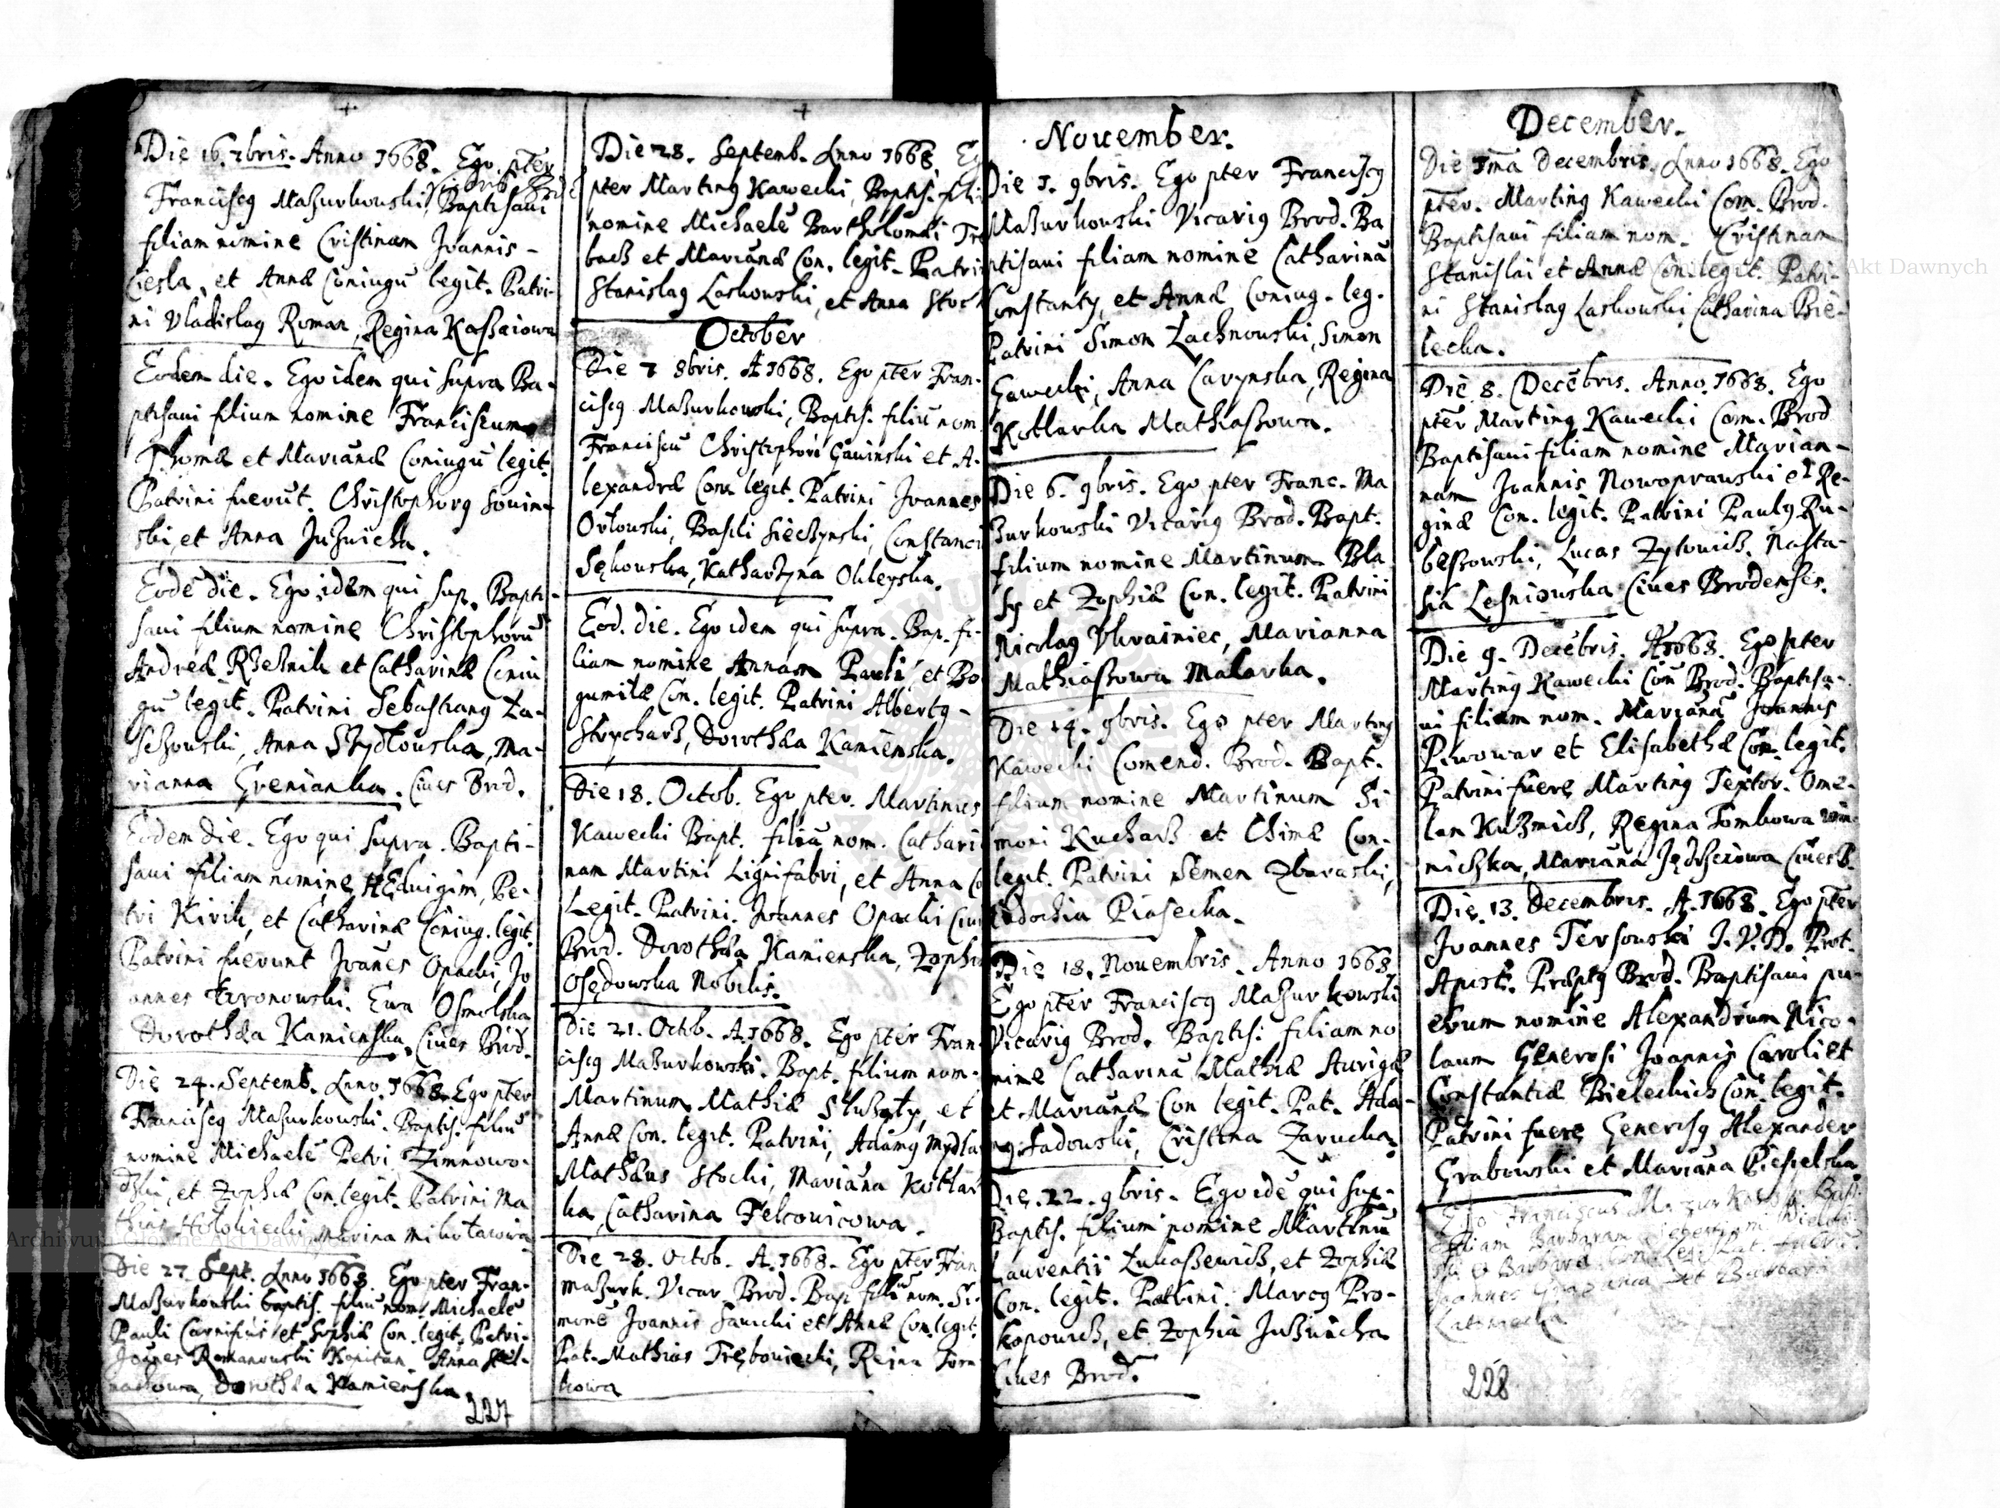 Die 16. 7bris. Anno 1668. Ego pter
Franciscq Mazurkowski Baptisavi
filiam nomine Cristinam Joannis
Ciesla, et Annæ Coniugū legit. Patri-
ni Vladislaq Roman, Regina Kassaiowa
Eodem die. Ego idem qui supra Ba-
ptisavi filium nomine Franciscum
Thomæ et Mariānæ Coniugū legit.
Patrini fuerūt. Christophorq
ski, et Anna Juzwicka.
Eodē die. Ego idem qui sup. Bapti-
savi filium nomine Christophorū
Andreæ Rzeznik et Catharinæ Coniu
gū legit. Patrini Sebastianq Za-
Anna Szydłowska, Ma-
rianna Grenianka. Cives Brod.
Eodem die. Ego qui supra Bapti-
savi filiam nomine Heduigim, Pe-
tri Kirik, et Catharinæ Coniug. legit.
Patrini fuerunt Joānes Opacki, Jo
annes Ewa Osmolska
Dorothæa Kamienska. Cives Brod.
Die 24. Septemb. Anno 1668. Ego pter
Franciscq Mazurkowski. Baptis. filiū
nomine Michaelē Petri Zimnowo-
dzki, et Zophiæ Con. legit. Patrini Ma
thias Marina
Die 27. Sept. Anno 1668. Ego pter Fran-
Mazurkowski baptis. filiū nom. Michaelē
Pauli Carnificis et Sophiæ Con. legit. Patri-
Joānes Romanowski Kapitan. Anna
Dorothæa Kamienska
227
Die 28. Septemb. Anno 1668. Eg
pter Martinq Kawecki, Baptis. fili
nomine Michaelē Bartholomæi Tre
bacz et Mariānæ Con. legit. Patri
Stanislaq Laskowski, et Anna
October
Die 7 8bris. A 1668. Ego pter Fran-
ciscq Mazurkowski, Baptis. filiū nom.
Franciscū Christophori Gawinski et A-
lexandræ Con. legit. Patrini Joannes
Orlowski, Basili Constanci
Sękowska, Katharzyna Okleyska.
Eod. die. Ego idem qui supra. Bap. fi-
liam nomine Annam Pauli et Bo
gumilæ Con. legit. Patrini Albertq
Strycharz, Dorothæa Kamienska.
Die 18. Octob. Ego pter. Martinus
Kawecki Bapt. filiā nom. Cathari
nam Martini Lignifabri, et Anna Co
Legit. Patrini. Joannes Opacki Civis
Brod. Dorothæa Kamienska, Zophia
Osędowska Nobilis.
Die 21. Octob. A 1668. Ego pter Fran
ciscq Mazurkowski. Bapt. filium nom.
Martinum Mathiæ et
Annæ Con. legit. Patrini, Adamq
Mathæus Stocki, Mariāna Kotlar
ka, Catharina Felcowicowa.
Die 28. Octob. A. 1668. Ego pter Fran
Mazurk. Vicar. Brod. Bap. filiū nom. Si-
monē Joannis Sawicki et Annæ Con. legit.
Pat. Mathias Trębowiecki, Rejna
kowa
November.
Die 1. 9bris. Ego pter Franciscq
Mazurkowski Vicariq Brod. Ba
ptisavi filiam nomine Catharinā
Constantÿ, et Annæ Coniug. leg.
Patrini Simon Zachnowski, Simon
Gawecki, Anna Carynska, Regina
Kotlarka Mathiaszowa.
Die 6. 9bris. Ego pter Franc. Ma
zurkowski Vicariq Brod. Bapt.
filium nomine Martinum Bla
sÿ et Zophiæ Con. legit. Patrini
Nicolaq Ukrainiec, Marianna
Mathiaszowa Malarka.
Die 14. 9bris. Ego pter Martinq
Kawecki Comend. Brod. Bapt.
filium nomine Martinum Si
moni Kucharz et Chimæ Con.
legit. Patrini Semen Zbaraski,
Eudochia Piasecka.
Die 18. Novembris. Anno 1668
Ego pter Franciscq Mazurkowski
Vicariq Brod. Baptis: filiam no
mine Catharinā Mathiæ Aurigæ
et Mariānæ Con legit. Pat. Ada-
mq Sadowski, Cristina Zarucka.
Die. 22. 9bris. Ego idē qui sup.
Baptis. filium nomine Martinū
Laurentii Lukaszewicz, et Zophiæ
Con. legit. Patrini. Marcq Pro-
kopowicz, et Zophia Juzwicka
Cives Brod.
December.
Die 1ma Decembris. Anno 1668. Ego
pter. Martinq Kawecki Com. Brod.
Baptisavi filiam nom. Cristinam
Stanislai et Annæ Con. legit. Patri-
ni Stanislaq Laskowski, Catharina Bie-
lecka.
Die 8. Decēbris. Anno. 1668. Ego
pter Martinq Kawecki Com. Brod
Baptisavi filiam nomine Marian-
nam Joannis Nowoprawski et Re-
ginæ Con. legit. Patrini Paulq Ru-
beszowski, Lucas Zytowicz. Nasta-
sia Lesniowska Cives Brodenses.
Die 9. Decēbris. A 1668. Ego pter
Martinq Kawecki Con Brod. Baptisa-
vi filiam nom. Mariānā Joannis
Piwowar et Elisabethæ Con. legit.
Patrini fuere Martinq Textor. Ome-
lan Kuzmicz, Regina Tombowa
niczka, Mariāna Cives B.
Die. 13. Decembris. A. 1668. Ego pter
Joannes Tersowski J. V. D. Prot.
Apost. Præptq Brod. Baptisavi pu-
erum nomine Alexandrum Nico-
laum Generosi Joannis Caroli et
Constantiæ Bieleckich Con. legit.
Patrini fuere Generosq Alexander
Grabowski et Mariāna Piesielska
Ego Franciscus Mazurkowski Bap.
filiam Barbaram
et Barbaræ Con. Leg. Pat. fuere
Joannes et Barbara
228